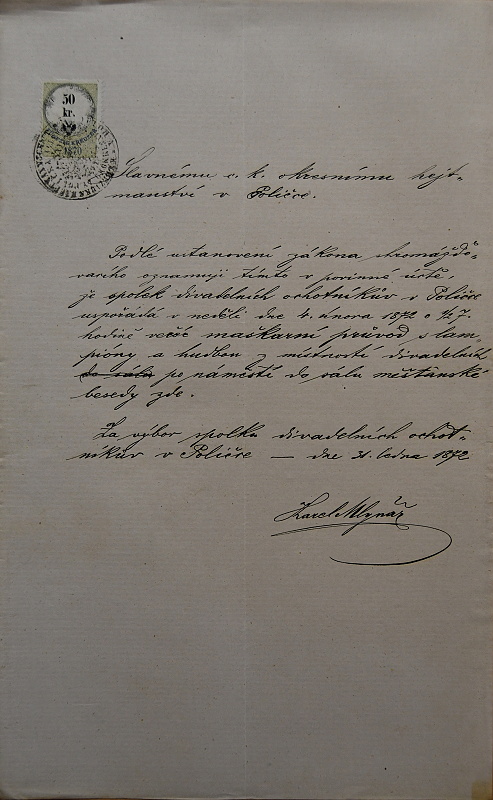 50
kr.
1870
Slavnému c. k. okresnímu hejt-
manství v Poličce.
Podlé ustanovení zákona shromážďo-
vacího oznamuji tímto v povinné úctě,
že spolek divadelních ochotníkův v Poličce
uspořádá v neděli dne 4. února 1872 o ½7.
hodině večer maškarní průvod s lam-
pióny a hudbou z místnosti divadelních
do sálu po náměstí do sálu měšťanské
besedy zde.
Za výbor spolku divadelních ochot-
níkův v Poličce — dne 31. ledna 1872
Karel Mlynář